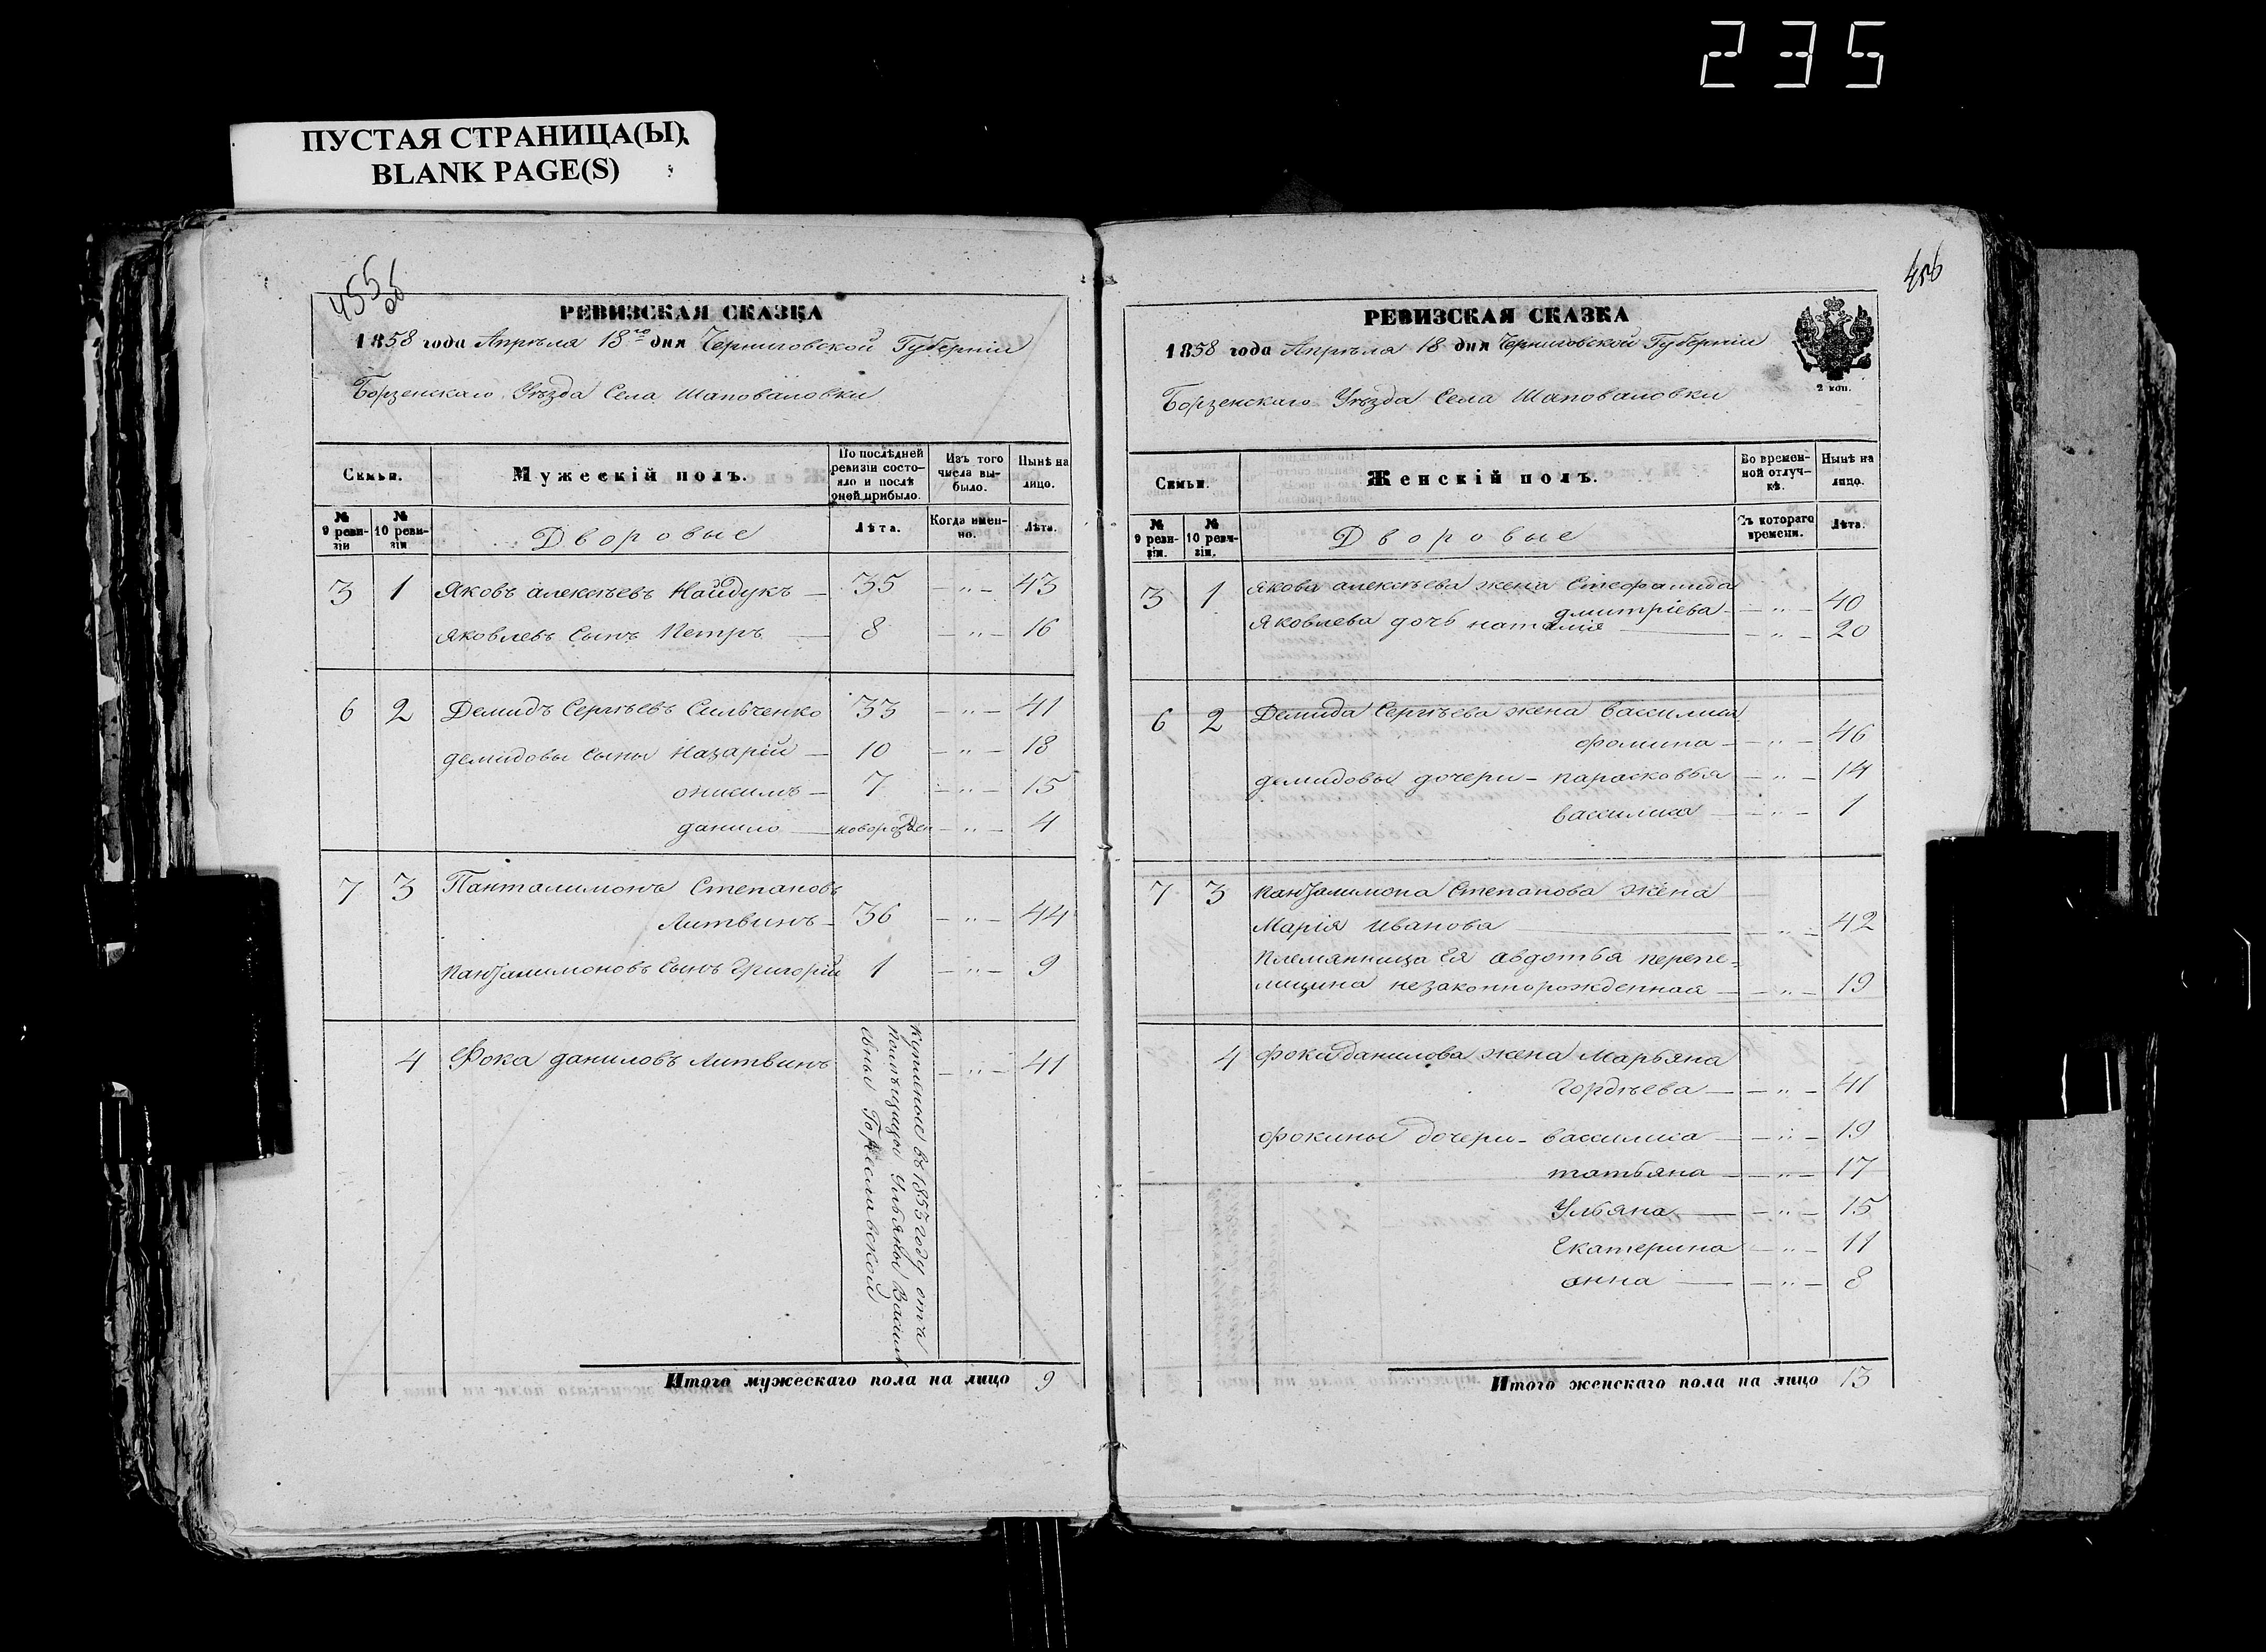 235
ПУСТАЯ СТРАНИЦА(Ы)
BLANK PAGE(S)
455 об
РЕВИЗСКАЯ СКАЗКА
1858 года Апрѣля 18го дня Черниговской Губерніи
Борзенскаго Уѣзда Села Шаповаловки
Семьи.
Мужескій полъ.
По послѣдней ревизіи состояло и послѣ оной прибыло.
Изъ того числа выбыло.
Нынѣ на лицо.
№ 9 ревизіи
№ 10 ревизіи
Дворовые
Лѣта.
Когда именно.
Лѣта.
3 1 Яковъ алексѣевъ Найдукъ — 35 — „ — 43
яковлевъ Сынъ Петръ — 8 — „ — 16
6 2 Демидъ Сергѣевъ Сильченко 33 — „ — 41
демидовы Сыны Назарій — 10 — „ — 18
онисимъ — 7 — „ — 15
данило — новорожден — „ — 4
7 3 Панталимонъ Степановъ
Литвинъ — 36 — „ — 44
панталимоновъ Сынъ Григорій 1 — „ — 9
4 Фока даниловъ Литвинъ — „ — 41
купленые въ 1853 году отъ
помѣщицы Ульяны Василь
евны Гореславской
Итого мужескаго пола на лицо 9
456
РЕВИЗСКАЯ СКАЗКА
1858 года Апрѣля 18 дня Черниговской Губерніи
2 коп.
Борзенскаго Уѣзда Села Шаповаловки
Семьи.
Женскій полъ.
Во временной отлучкѣ.
Нынѣ на лицо.
№ 9 ревизіи.
№ 10 ревизіи.
Дворовые
Съ котораго времени.
Лѣта.
3 1 Якова алексѣева жена Стефанида
дмитріева — „ — 40
Яковлева дочь наталія — „ — 20
6 2 Демида Сергѣева жена Василиса
фомина — „ — 46
демидовы дочери — парасковья — „ — 14
василиса — „ — 1
7 3 панталимона Степанова жена
Марія Иванова — „ — 42
Племянница Ея авдотья перепе=
лицина незаконнорожденная — „ — 19
4 фоки данилова жена Марьяна
Гордѣева — „ — 41
фокины дочери — василиса — „ — 19
татьяна — „ — 17
Ульяна — „ — 15
Екатерина — „ — 11
анна — „ — 8
Итого женскаго пола на лицо 13